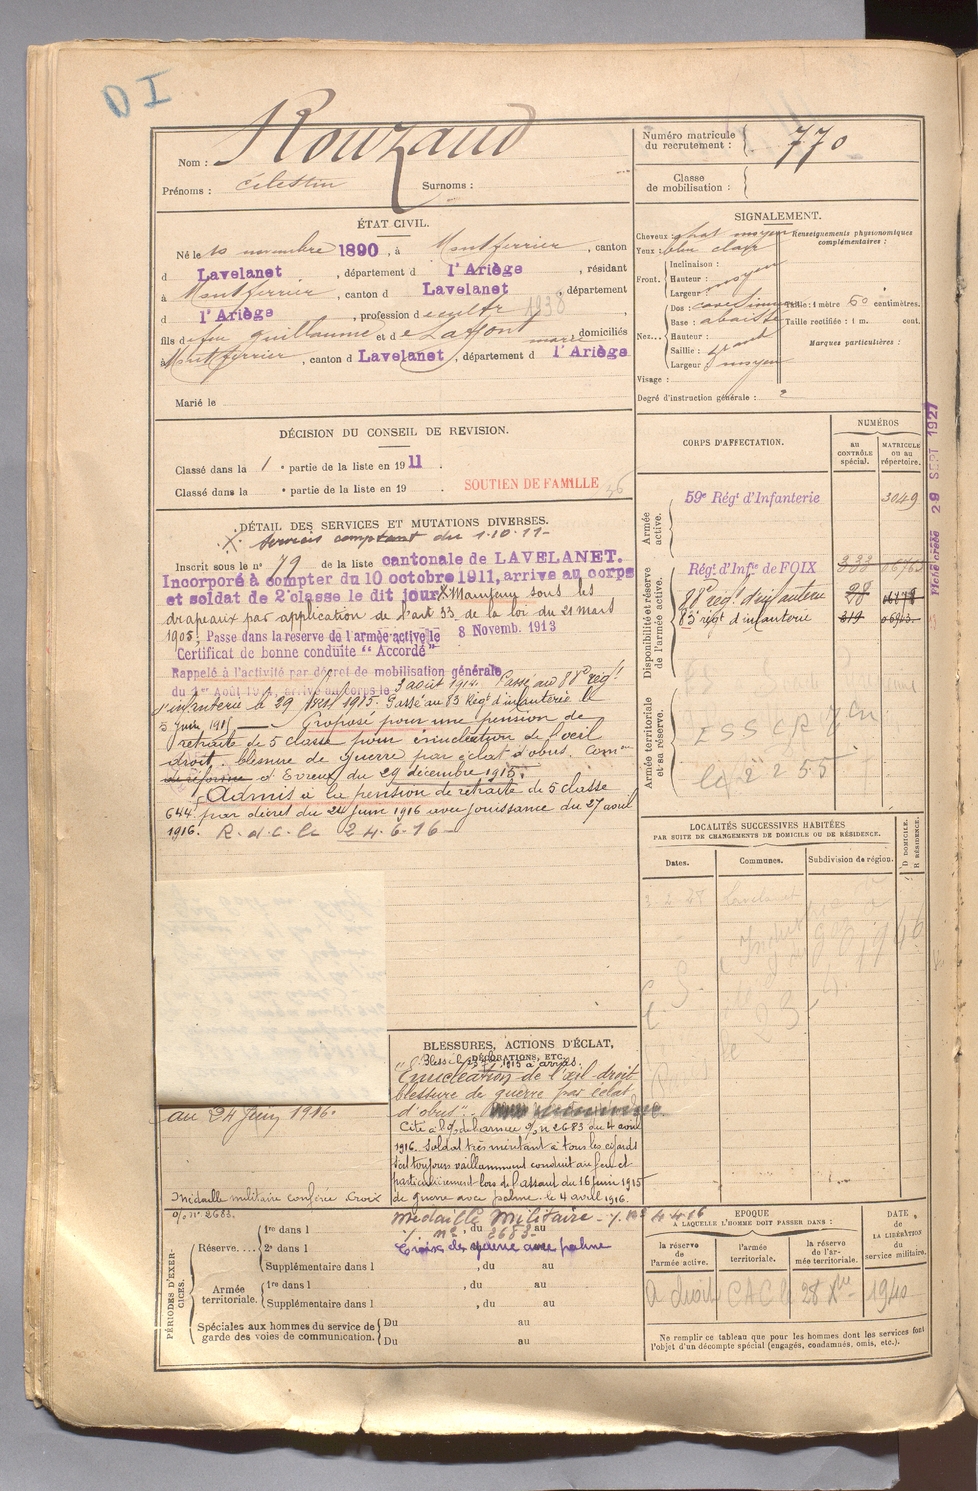 D I
Nom : Rouzaud
Prénoms : Célestin Surnoms :
Numéro matricule
du recrutement : 770
Classe
de mobilisation :
ÉTAT CIVIL.
Né le 10 novembre 1890, à Montferrier, canton
d Lavelanet, département d l'Ariège, résidant
à Montferrier, canton d Lavelanet, département
d l'Ariège, profession de cultr 1938
fils de feu Guillaume et de Laffont
domiciliés
à Montferrier, canton d Lavelanet, département d l'Ariège.
Marié le
SIGNALEMENT.
Cheveux : chat moyen
Yeux : bleu clair
Renseignements physionomiques
complémentaires :
Front.
Inclinaison :
Hauteur : moyen
Largeur :
Nez...
Dos : cave
Base : abaissé
Hauteur :
Saillie : grand
Largeur : moyen
Taille : 1 mètre 60 centimètres.
Taille rectifiée : 1 m. cent.
Marques particulières :
Visage :
Degré d'instruction générale : 2
DÉCISION DU CONSEIL DE REVISION.
Classé dans la 1 e partie de la liste en 1911.
Classé dans la e partie de la liste en 19 .
SOUTIEN DE FAMILLE
DÉTAIL DES SERVICES ET MUTATIONS DIVERSES.
X Services comptant du 1-10-11-
Inscrit sous le n° 79 de la liste cantonale de LAVELANET.
Incorporé à compter du 10 octobre 1911, arrive au corps
et soldat de 2e classe le dit jour X Maintenu sous les
drapeaux par application de l'art 33 de la loi du 21 mars
1905. Passe dans la reserve de l'armée active le 8 Novemb. 1913
Certificat de bonne conduite "Accordé"
Rappelé à l'activité par décret de mobilisation générale
du 1er Août 1914, arrivé au corps le 3 août 1914. Passé au 88e régt
d'infanterie le 29 1915. Passé au 83 Régt d'infanterie le
5 Juin 1915 — Proposé pour une pension de
retraite de 5 classe pour énucléation de l'oeil
droit. blessure de guerre par éclat d'obus. Comon
de réforme d'Evreux du 29 décembre 1915.
Admis à la pension de retraite de 5 classe
644f par décret du 24 Juin 1916 avec jouissance du 27 avril
1916. R. d. C. le 24-6-16-
au 24 Juin 1916.
Médaille militaire conférée Croix
o/o n° 2683.
CORPS D'AFFECTATION.
NUMÉROS
au
CONTRÔLE
spécial.
MATRICULE
ou au
répertoire.
Armée
active.
59e Régt d'Infanterie 3049
Disponibilité et réserve
de l'armée active.
Régt d'Infie de FOIX
88e régt d'infanterie
83e régt d'infanterie
Armée territoriale
et sa réserve.
Fiche créée 29 SEPT 1927
LOCALITÉS SUCCESSIVES HABITÉES
PAR SUITE DE CHANGEMENTS DE DOMICILE OU DE RÉSIDENCE.
Dates.
Communes.
Subdivision de région.
D DOMICILE.
R RÉSIDENCE.
3-2-28 Lavelanet
BLESSURES, ACTIONS D'ÉCLAT,
DÉCORATIONS, ETC.
Blessé le 1915 à arras.
"Enucléation de l'œil droit
blessure de guerre par éclat
d'obus".
Cité à l'o/ de l'armée o/o n° 2683 du 4 avril
1916. Soldat très méritant à tous les égards
s'est toujours vaillamment conduit au feu et
particulièrement lors de l'assaut du 16 juin 1915
de guerre avec palme. le 4 avril 1916.
Médaille Militaire
Croix de guerre avec palme
PÉRIODES D'EXER-
CICES.
Réserve....
1re dans l , du au
2e dans l
Supplémentaire dans l , du au
Armée
territoriale.
1re dans l , du au
Supplémentaire dans l , du au
Spéciales aux hommes du service de
garde des voies de communication.
Du au
Du au
EPOQUE
A LAQUELLE L'HOMME DOIT PASSER DANS :
la réserve
de l'armée active.
l'armée
territoriale.
la réserve
de l'ar-
mée territoriale.
DATE
de
LA LIBÉRATION
du
service militaire.
a droit CAC le 28 Xbre 1940
Ne remplir ce tableau que pour les hommes dont les services font
l'objet d'un décompte spécial (engagés, condamnés, omis, etc.).